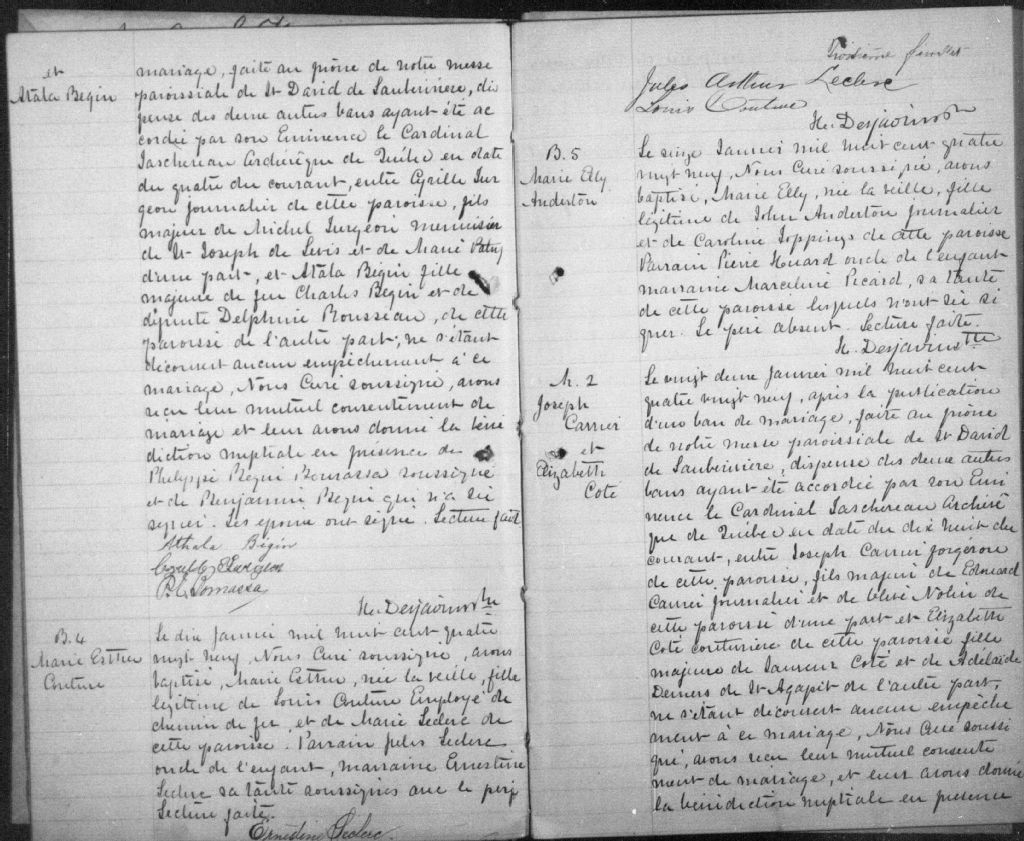 et
Atala Bégin
mariage, faite au prône de notre messe
paroissiale de St David de Laubiniere, dis
pense des deux autres bans ayant été ac
cordée par son Eminence le Cardinal
Taschereau Archevêque de Québec en date
du quatre du courant, entre Cyrille Tur
geon journalier de cette paroisse, fils
majeur de Michel Turgeon menuisier
de St Joseph de Levis et de Marie Patry
d'une part, et Atala Bégin fille
majeure de feu Charles Bégin et de
défunte Delphine Rousseau, de cette
paroisse de l'autre part; ne s'étant
découvert aucun empêchement à ce
mariage, Nous Curé soussigné, avons
reçu leur mutuel consentement de
mariage et leur avons donné la béné
diction nuptiale en présence de
Philippe Bégin Bourassa soussigné
et de Benjamin Bégin qui n'a su
signer. Les époux ont signé. Lecture faite
Athala Bégin
Cyrille Turgeon
P. B. Bourassa
H. Desjardins Ptre
B. 4
Marie Esther
Couture
Le dix Janvier mil huit cent quatre
vingt neuf, Nous Curé soussigné, avons
baptisé, Marie Esther, née la veille, fille
légitime de Louis Couture Employé de
chemin de fer, et de Marie Leclerc de
cette paroisse. Parrain Jules Leclerc
oncle de l'enfant, marraine Ernestine
Leclerc sa tante soussignés avec le père
Lecture faite.
Ernestine Leclerc.
Troisième feuillet
Jules Arthur Leclerc
Louis Couture
H. Desjardins Ptre
B. 5
Marie Elly
Anderton
Le seize Janvier mil huit cent quatre
vingt neuf, Nous Curé soussigné, avons
baptisé, Marie Elly, née la veille, fille
légitime de John Anderton journalier
et de Caroline Toppings de cette paroisse
Parrain Pierre Houard oncle de l'enfant
marraine Marceline Picard, sa tante
de cette paroisse lesquels n'ont su si
gner. Le père absent. Lecture faite.
H. Desjardins Ptre
M. 2
Joseph
Carrier
et
Elizabeth
Coté
Le vingt deux Janvier mil huit cent
quatre vingt neuf, après la publication
d'un ban de mariage, faite au prône
de notre messe paroissiale de St David
de Laubiniere, dispense des deux autres
bans ayant été accordée par son Emi
nence le Cardinal Taschereau Archevê
que de Québec en date du dix huit du
courant, entre Joseph Carrier forgeron
de cette paroisse, fils majeur de Edouard
Carrier journalier et de Nolin de
cette paroisse d'une part et Elizabeth
Coté couturière de cette paroisse fille
majeure de Sauveur Coté et de Adélaïde
Demers de St Agapit de l'autre part,
ne s'étant découvert aucun empêche
ment à ce mariage, Nous Curé soussi
gné, avons reçu leur mutuel consente
ment de mariage, et leur avons donné
la bénédiction nuptiale en présence